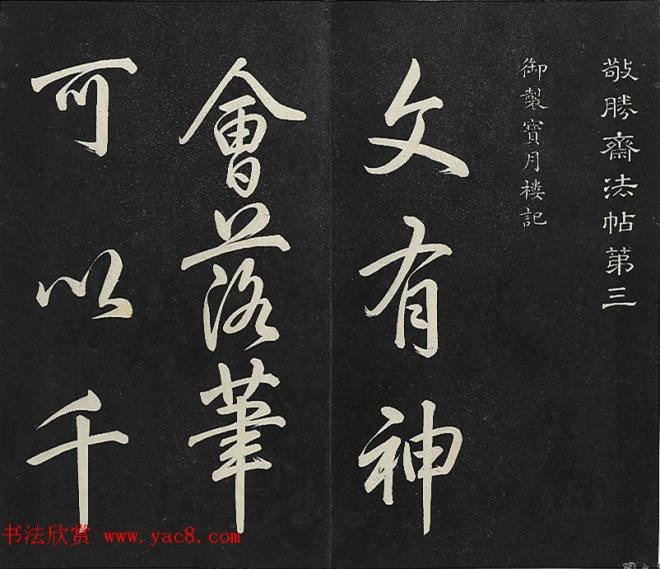 敬勝齋法帖第三
御製寳月樓記
文有神
會落筆
可以千
书法欣赏 www.yac8.com